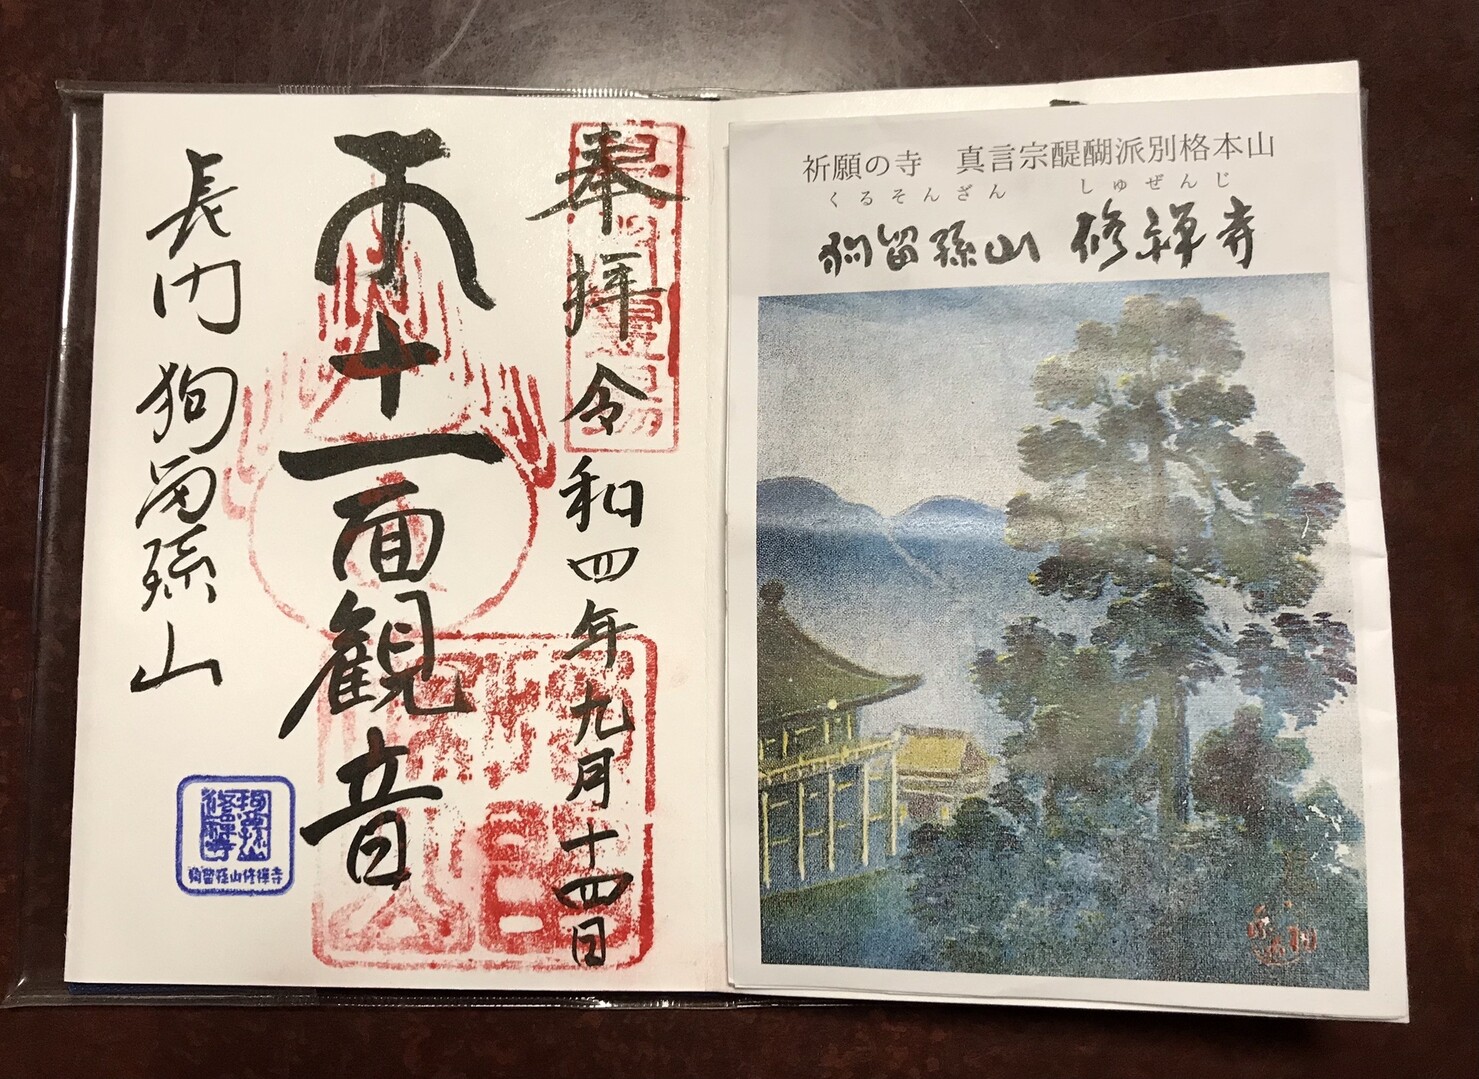 奉拝 令和四年九月十四日
十一面観音
長門 狗留孫山
狗留孫山修禅寺
祈願の寺 真言宗醍醐派別格本山
くるそんざん しゅぜんじ
狗留孫山 修禅寺